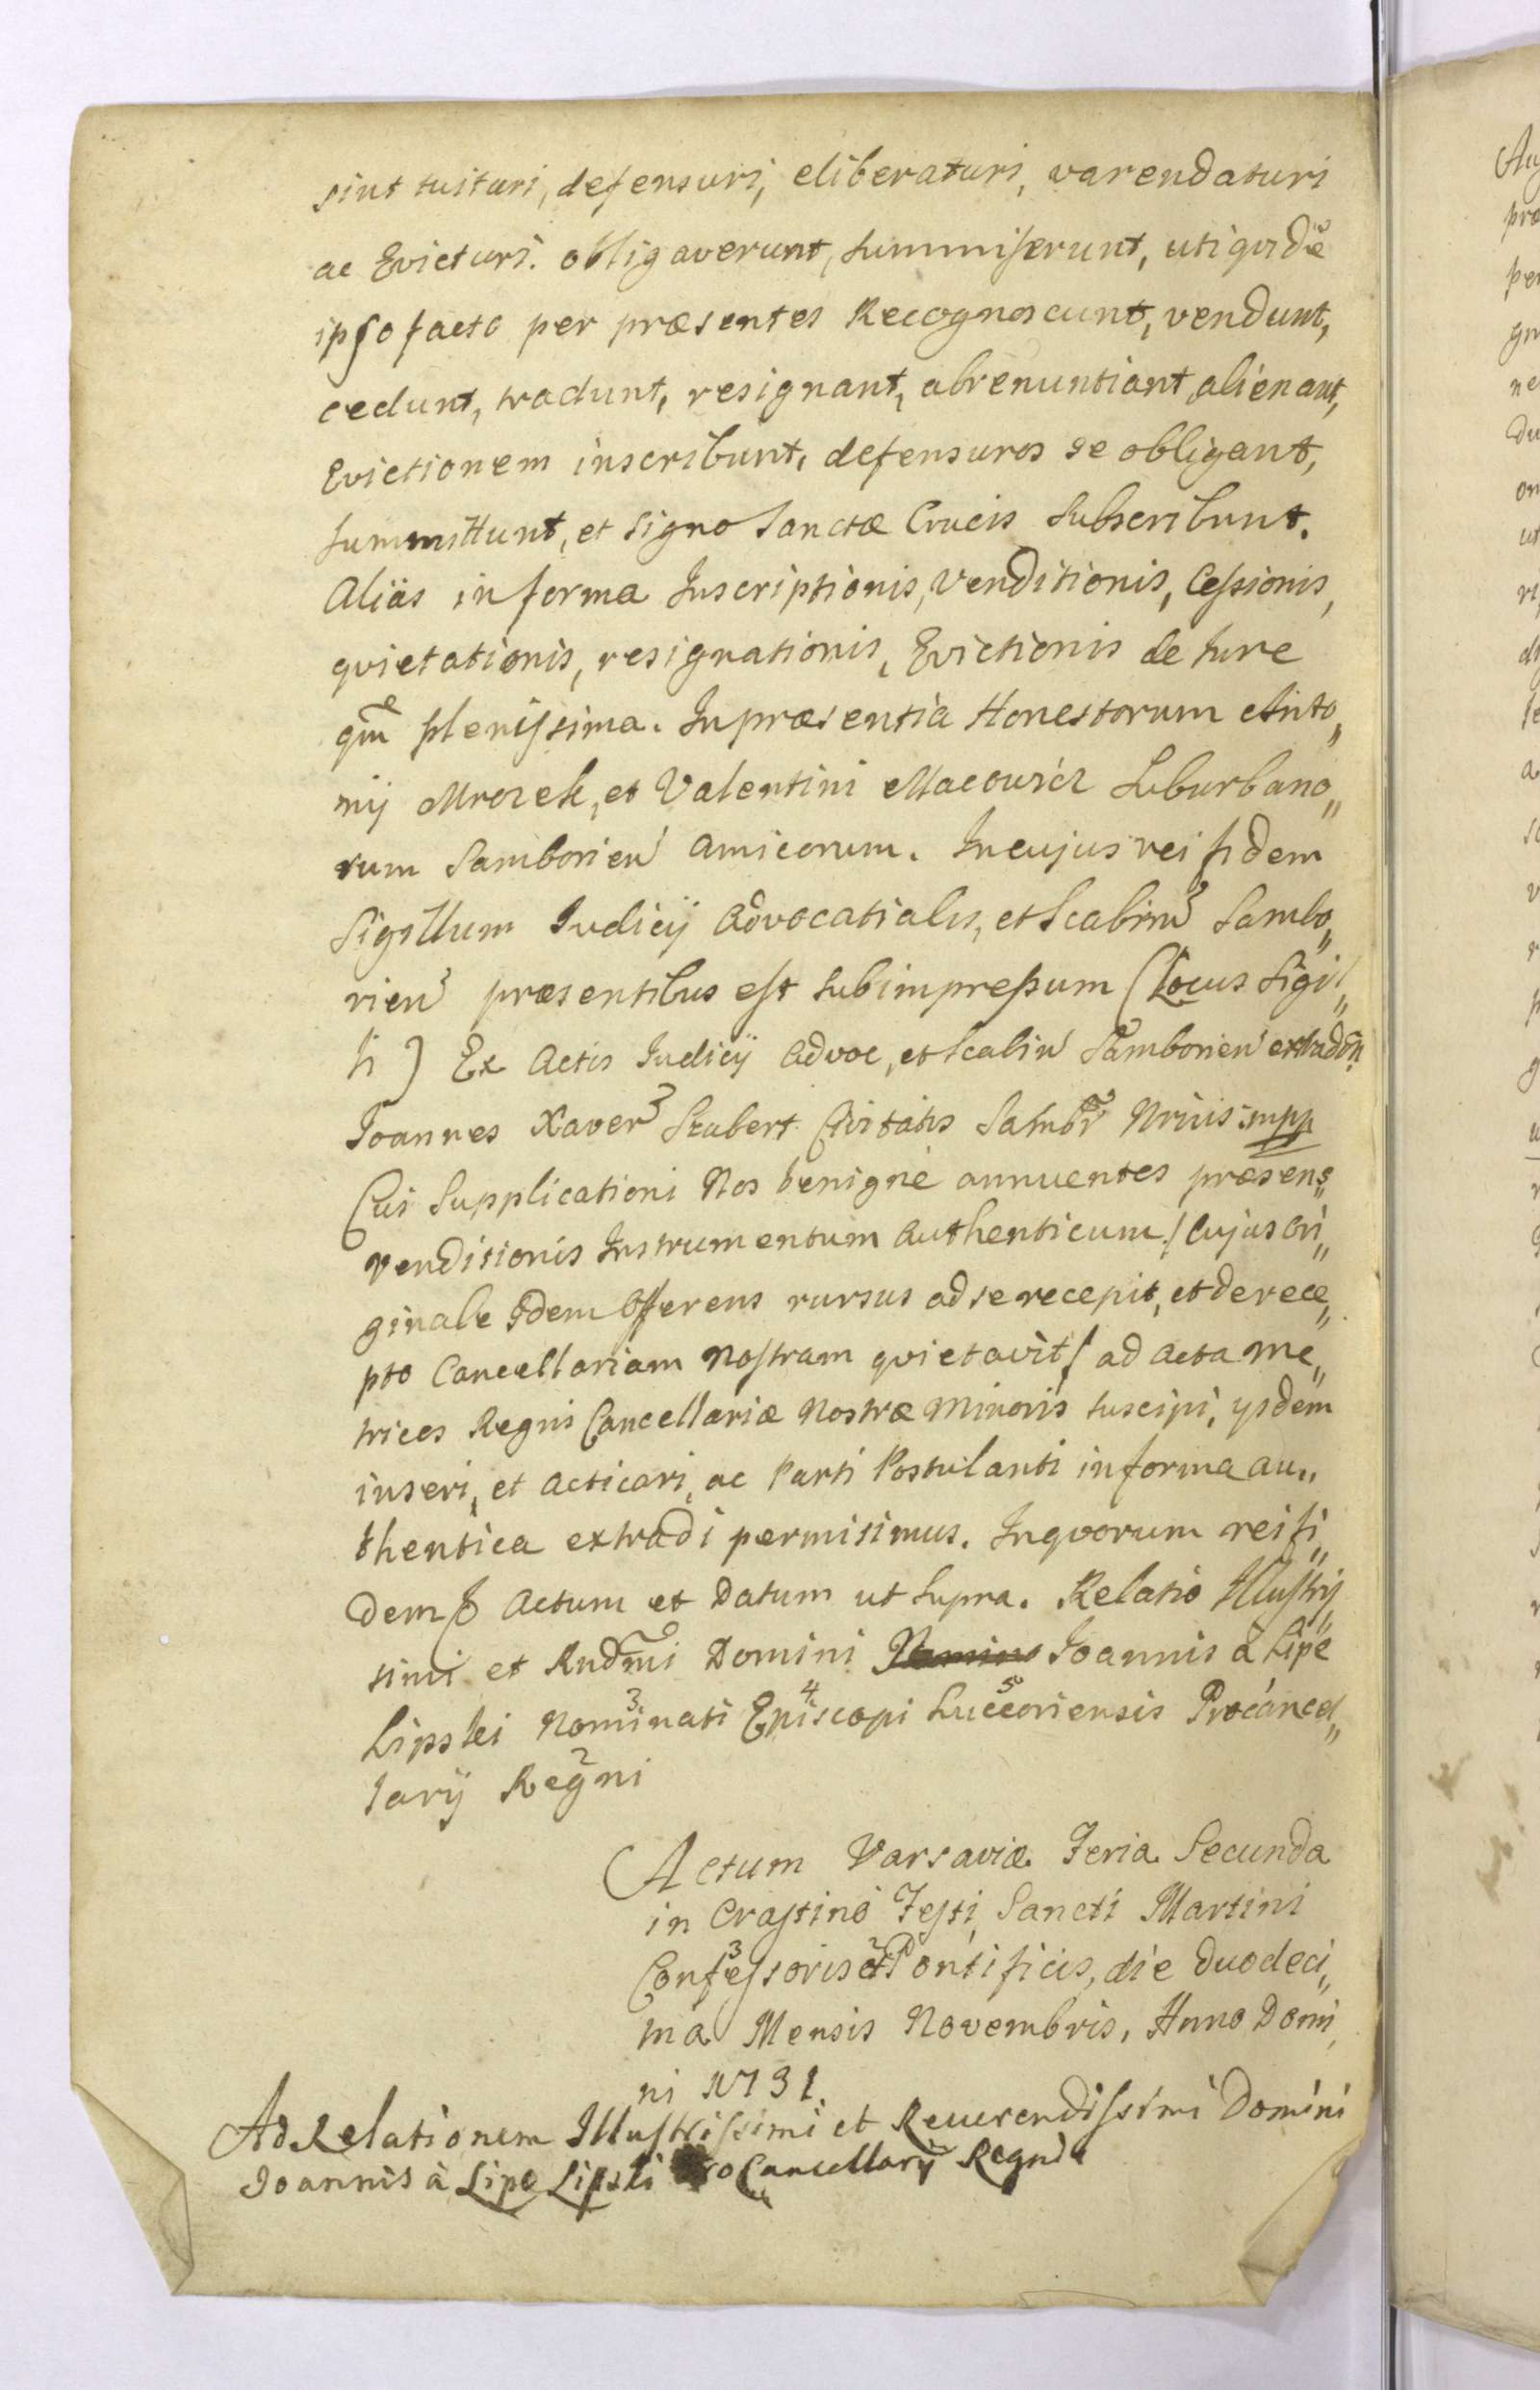 sint tuituri, defensuri, eliberaturi, varendaturi
ac Evicturi. obligaverunt, summiserunt, uti qvidē
ipso facto per præsentes Recognoscunt, vendunt,
cedunt, tradunt, resignant, abrenuntiant, alienant,
Evictionem inscribunt, defensuros se obligant,
summittunt, et Signo Sanctæ Crucis Subscribunt.
Aliàs in forma Inscriptionis, Venditionis, Cessionis,
qvietationis, resignationis, Evictionis de Iure
qm̄ plenissima. In præsentia Honestorum Anto„
nij Mrozek, et Valentini Macowicz Suburbano„
rum Samborien amicorum. In cujus rei fidem
Sigillum Iudicij Advocatialis, et Scabin Sambo„
rien præsentibus est subimpressum (Locus Sigil„
li) Ex Actis Iudicij Advoc, et Scabin Samborien extradn
Ioannes Xaver Szubert Civitatis Sambr Nrius mpp
Cui Supplicationi Nos benigne annuentes præsens„
Venditionis Instrumentum authenticum / Cujus Ori„
ginale Idem Offerens rursus ad se recepit, et de rece„
pto Cancellariam Nostram qvietavit / ad Acta Me„
trices Regni Cancellariæ Nostræ Minoris suscipi, ijsdem
inseri, et acticari, ac Parti Postulanti in forma au„
thentica extradi permisimus. In qvorum rei fi„
dem Actum et Datum ut Supra. Relatio Illustris„
simi et Rndmi Domini Ioannis à Lipe
Lipski Nominati Episcopi Lucceoriensis Procancel„
larij Regni
Actum Varsaviæ Feria Secunda
in Crastino Festi Sancti Martini
Confessoris et Pontificis, die duodeci„
ma Mensis Novembris, Anno Domi„
ni 1731.
Ad Relationem Illustrissimi et Reuerendissimi Domini
Joannis à Lipe Lipski ProCancellarij Regni